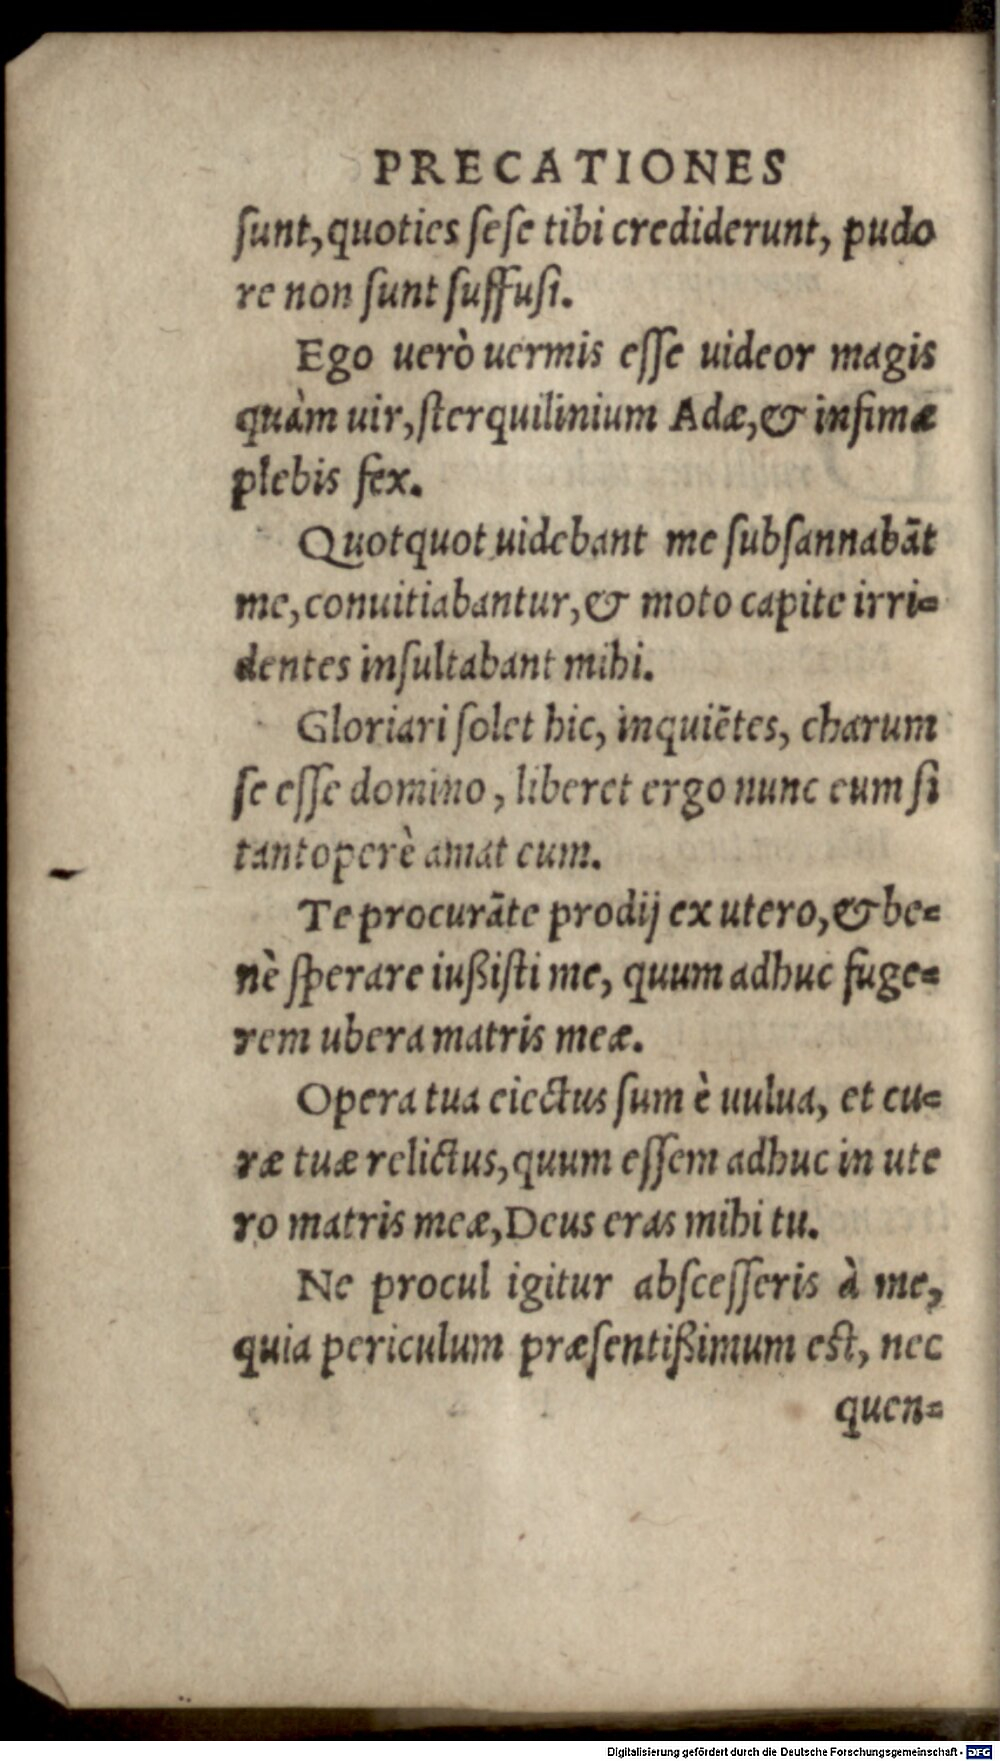 PRECATIONES
sunt, quoties sese tibi crediderunt, pudo
re non sunt suffusi.
Ego uerò uermis esse uideor magis
quàm uir, sterquilinium Adæ, & infimæ
plebis fex.
Quotquot uidebant me subsannabāt
me, conuitiabantur, & moto capite irri-
dentes insultabant mihi.
Gloriari solet hic, inquiētes, charum
se esse domino, liberet ergo nunc eum si
tantoperè amat eum.
Te procurāte prodij ex utero, & be-
nè sperare iußisti me, quum adhuc fuge-
rem ubera matris meæ.
Opera tua eiectus sum è uulua, et cu-
ræ tuæ relictus, quum essem adhuc in ute
ro matris meæ, Deus eras mihi tu.
Ne procul igitur abscesseris à me,
quia periculum præsentißimum est, nec
quen-
Digitalisierung gefördert durch die Deutsche Forschungsgemeinschaft - DFG